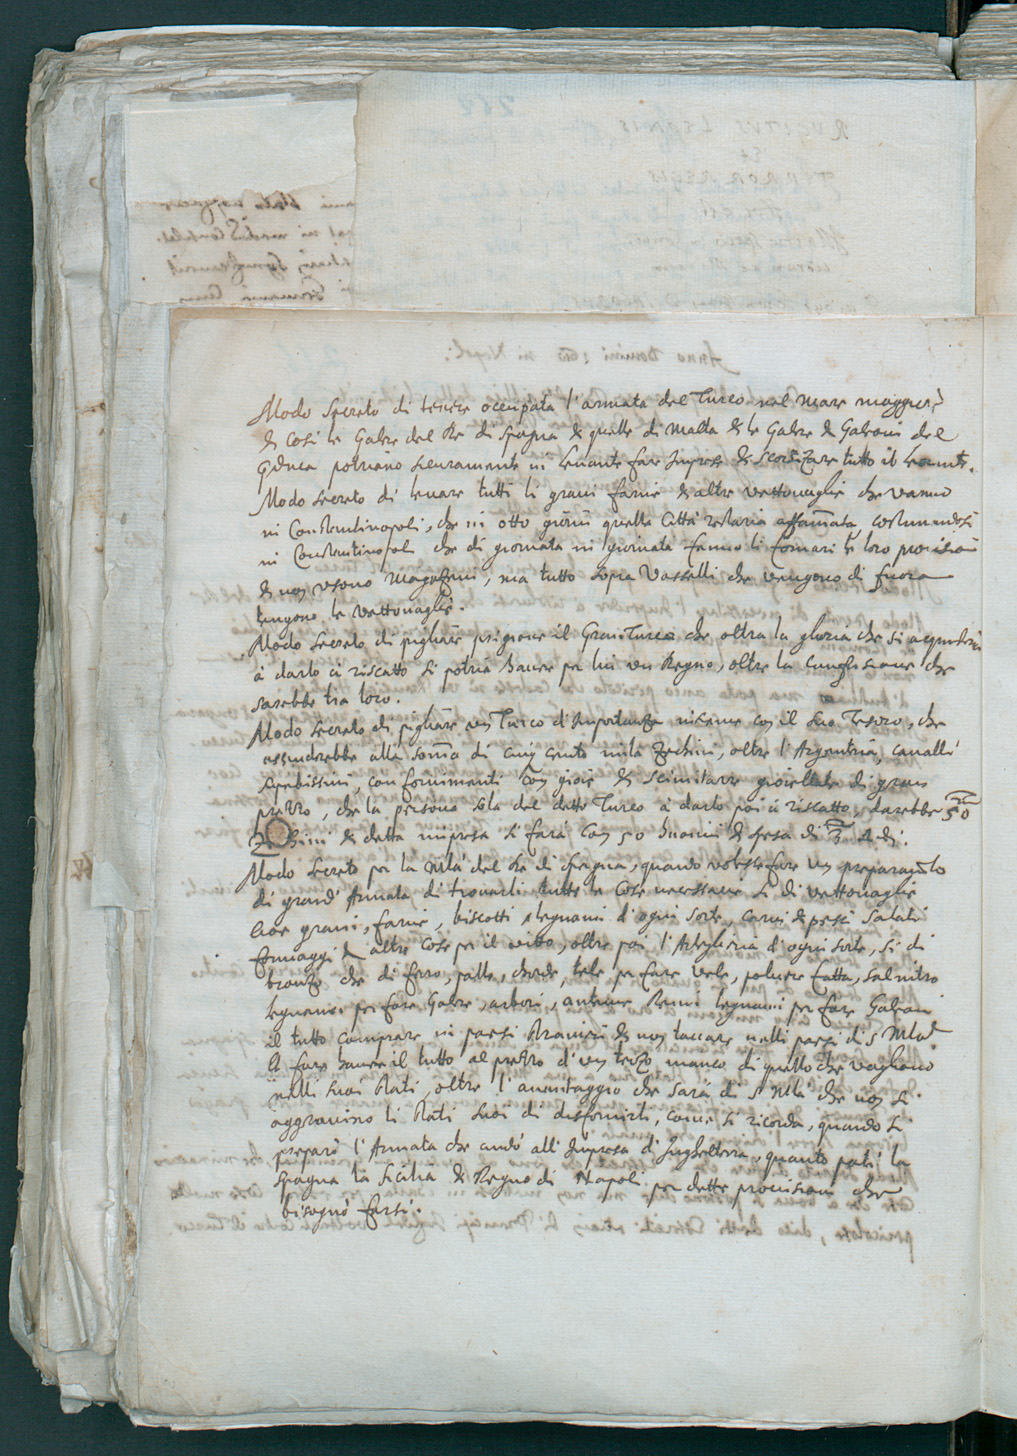 Modo secreto di tenere occupata l'armata del Turco nel Mare maggiore
& cosi le Galere del Re di Spagna & quelle di Malta & le Galere & Galeoni del
G Duca potriano sicuramente in levante fare Imprese & scorizare tutto il levante.
Modo secreto di levare tutti li grani farine & altre vettovaglie che vanno
in Constantinopoli, che in otto giorni quella Città restaria affamata, costumandosi
in Constantinopoli che di giornata in giornata fanno li fornari le loro provisioni
& non usono Magazeni, ma tutto sopra Vasselli che vengono di fuora
tengono le vettovaglie.
Modo secreto di pigliare prigione il Gran Turco che oltra la gloria che si acquistaria
à darlo à riscatto si potria havere per lui un Regno, oltre la confusione che
sarebbe tra loro.
Modo secreto di pigliare un Turco d'Importanza insieme con il suo Tesoro, che
ascenderebbe alla somma di cinq cento mila Zechini, oltre l'Argentaria, cavalli
superbissimi, con fornimenti con gioie & scimitarre gioiellate di gran
prezzo, che la persona sola del detto Turco à darlo poi à riscatto, darebbe 50
Zechini & detta impresa si farà con 50 huomini & spesa di 3 di
Modo secreto per la Mtà del Re di Spagna, quando volesse fare un preparamto
di grand' Armata di trovarli tutte le cose necessarie si di vettovaglie
cioe grani, farine, biscotti, legnami d'ogni sorte, carni & pesci salati
formaggi & altre cose per il vitto, oltre poi l'Artegliaria d'ogni sorte, si di
bronzo che di ferro, palle, chorde, tele per fare vele, polvere fatta, salnitro
legnami per fare Galere, arbori, antenne Remi legnami per fare Galeoni
il tutto comprare in paesi stranieri & non toccare nelli paesi di S Mtà
& fare havere il tutto al prezzo d'un terzo manco di quello che vagliono
nelli suoi stati, oltre l'avantaggio che sarà di S Mtà che non si
aggravino li stati suoi di disfornirli, come si ricorda, quando si
preparò l'Armata che andò all'Impresa d'Inghelterra, quanto patì la
Spagna la Sicilia & Regno di Napoli per dette provisioni che
bisognò farsi.